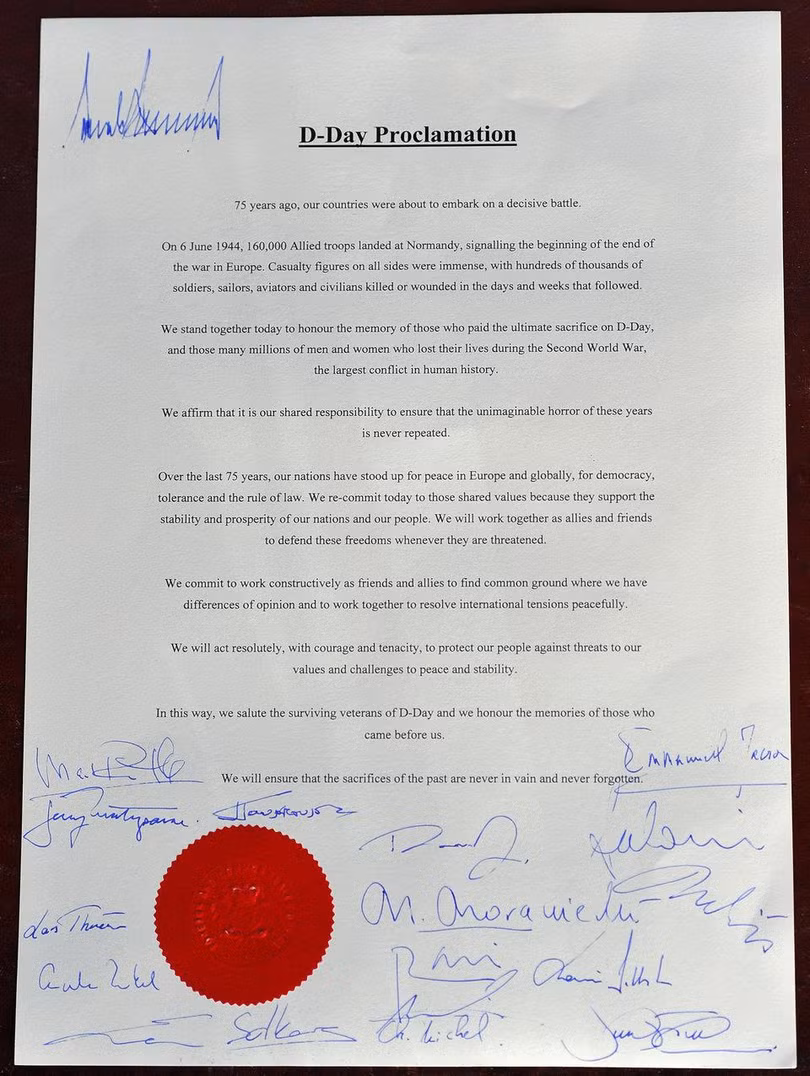 D-Day Proclamation
75 years ago, our countries were about to embark on a decisive battle.
On 6 June 1944, 160,000 Allied troops landed at Normandy, signalling the beginning of the end of
the war in Europe. Casualty figures on all sides were immense, with hundreds of thousands of
soldiers, sailors, aviators and civilians killed or wounded in the days and weeks that followed.
We stand together today to honour the memory of those who paid the ultimate sacrifice on D-Day,
and those many millions of men and women who lost their lives during the Second World War,
the largest conflict in human history.
We affirm that it is our shared responsibility to ensure that the unimaginable horror of these years
is never repeated.
Over the last 75 years, our nations have stood up for peace in Europe and globally, for democracy,
tolerance and the rule of law. We re-commit today to those shared values because they support the
stability and prosperity of our nations and our people. We will work together as allies and friends
to defend these freedoms whenever they are threatened.
We commit to work constructively as friends and allies to find common ground where we have
differences of opinion and to work together to resolve international tensions peacefully.
We will act resolutely, with courage and tenacity, to protect our people against threats to our
values and challenges to peace and stability.
In this way, we salute the surviving veterans of D-Day and we honour the memories of those who
came before us.
We will ensure that the sacrifices of the past are never in vain and never forgotten.
Emmanuel
Ch. Michel